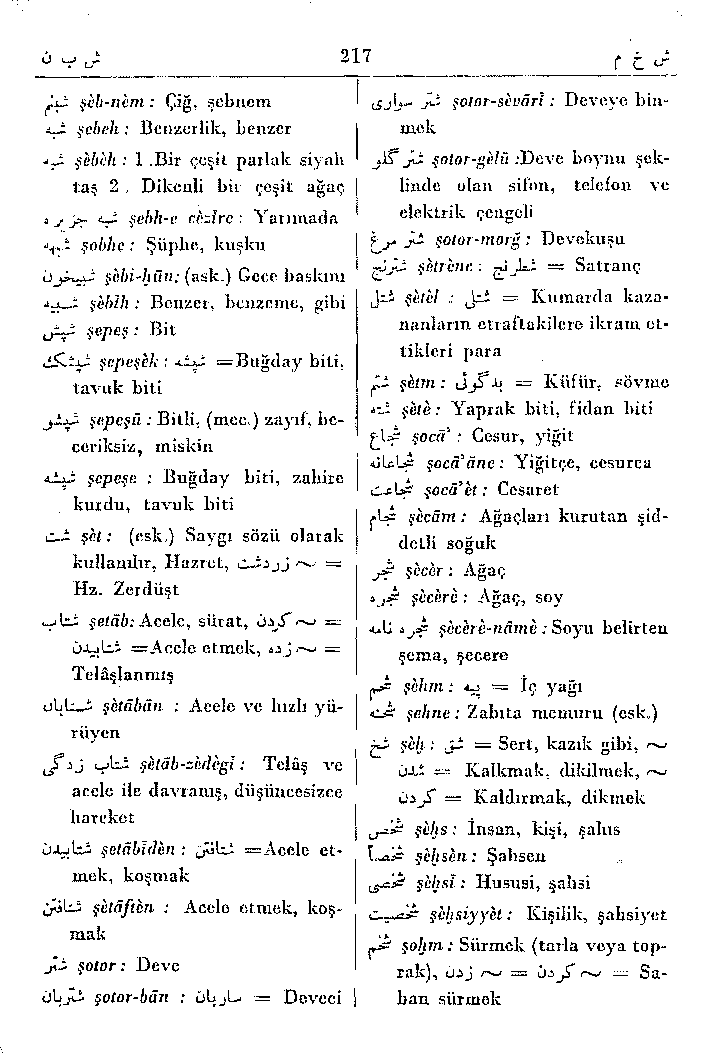 ش ب ن 217 ش خ م
شبنم şèb-nèm : Çiğ, şebnem
شبه şebeh : Benzerlik, benzer
شبه şèbèh : 1 .Bir çeşit parlak siyah
taş 2 . Dikenli bir çeşit ağaç
شبه جزیره şebh-e cèzîre : Yarımada
شبهه şobhe : Şüphe, kuşku
شبیخون şèbi-hūn: (ask.) Gece baskını
شبیه şèbîh : Benzer, benzeme, gibi
شپش şepeş : Bit
شپشک şepeşèk : شپشه =Buğday biti,
tavuk biti
شپشو şepeşū : Bitli, (mec.) zayıf, be-
ceriksiz, miskin
شپشه şepeşe : Buğday biti, zahire
kurdu, tavuk biti
شت şèt : (esk.) Saygı sözü olarak
kullanılır, Hazret, زردشت ~ =
Hz. Zerdüşt
شتاب şetāb: Acele, sürat, کردن ~ =
شتابیدن =Acele etmek, زده ~ =
Telâşlanmış
شتابان şètābān : Acele ve hızlı yü-
rüyen
شتاب زدگی şètāb-zèdègî : Telâş ve
acele ile davranış, düşüncesizce
hareket
شتابیدن şetābîdèn : شتافتن =Acele et-
mek, koşmak
شتافتن şètāftèn : Acele etmek, koş-
mak
شتر şotor : Deve
شتربان şotor-bān : ساربان = Deveci
شتر سواری şotor-sèvārî : Deveye bin-
mek
شتر گلو şotor-gèlū :Deve boynu şek-
linde olan sifon, telefon ve
elektrik çengeli
شتر مرغ şotor-morğ : Devekuşu
شترنج şètrènc : شطرنج = Satranç
شتل şètèl : شتل = Kumarda kaza-
nanların etraftakilere ikram et-
tikleri para
شتم şètm : بدگوئی = Küfür, sövme
شته şètè : Yaprak biti, fidan biti
شجاع şocā' : Cesur, yiğit
شجاعانه şocā'āne : Yiğitçe, cesurca
شجاعت şocā'èt : Cesaret
شجام şècām : Ağaçları kurutan şid-
detli soğuk
شجر şècèr : Ağaç
شجره şècèrè : Ağaç, soy
شجره نامه şècèrè-nāmè : Soyu belirten
şema, şecere
شحم şèhm : پیه = İç yağı
شحنه şahne : Zabıta memuru (esk.)
شخ şèḫ : شق = Sert, kazık gibi, ~
شدن = Kalkmak, dikilmek, ~
کردن = Kaldırmak, dikmek
شخص şèḫs : İnsan, kişi, şahıs
شخصاً şèḫsèn : Şahsen
شخصی şèḫsî : Hususi, şahsi
شخصیت şèḫsiyyèt : Kişilik, şahsiyet
شخم şoḫm : Sürmek (tarla veya top-
rak), زدن ~ = کردن ~ = Sa-
ban sürmek